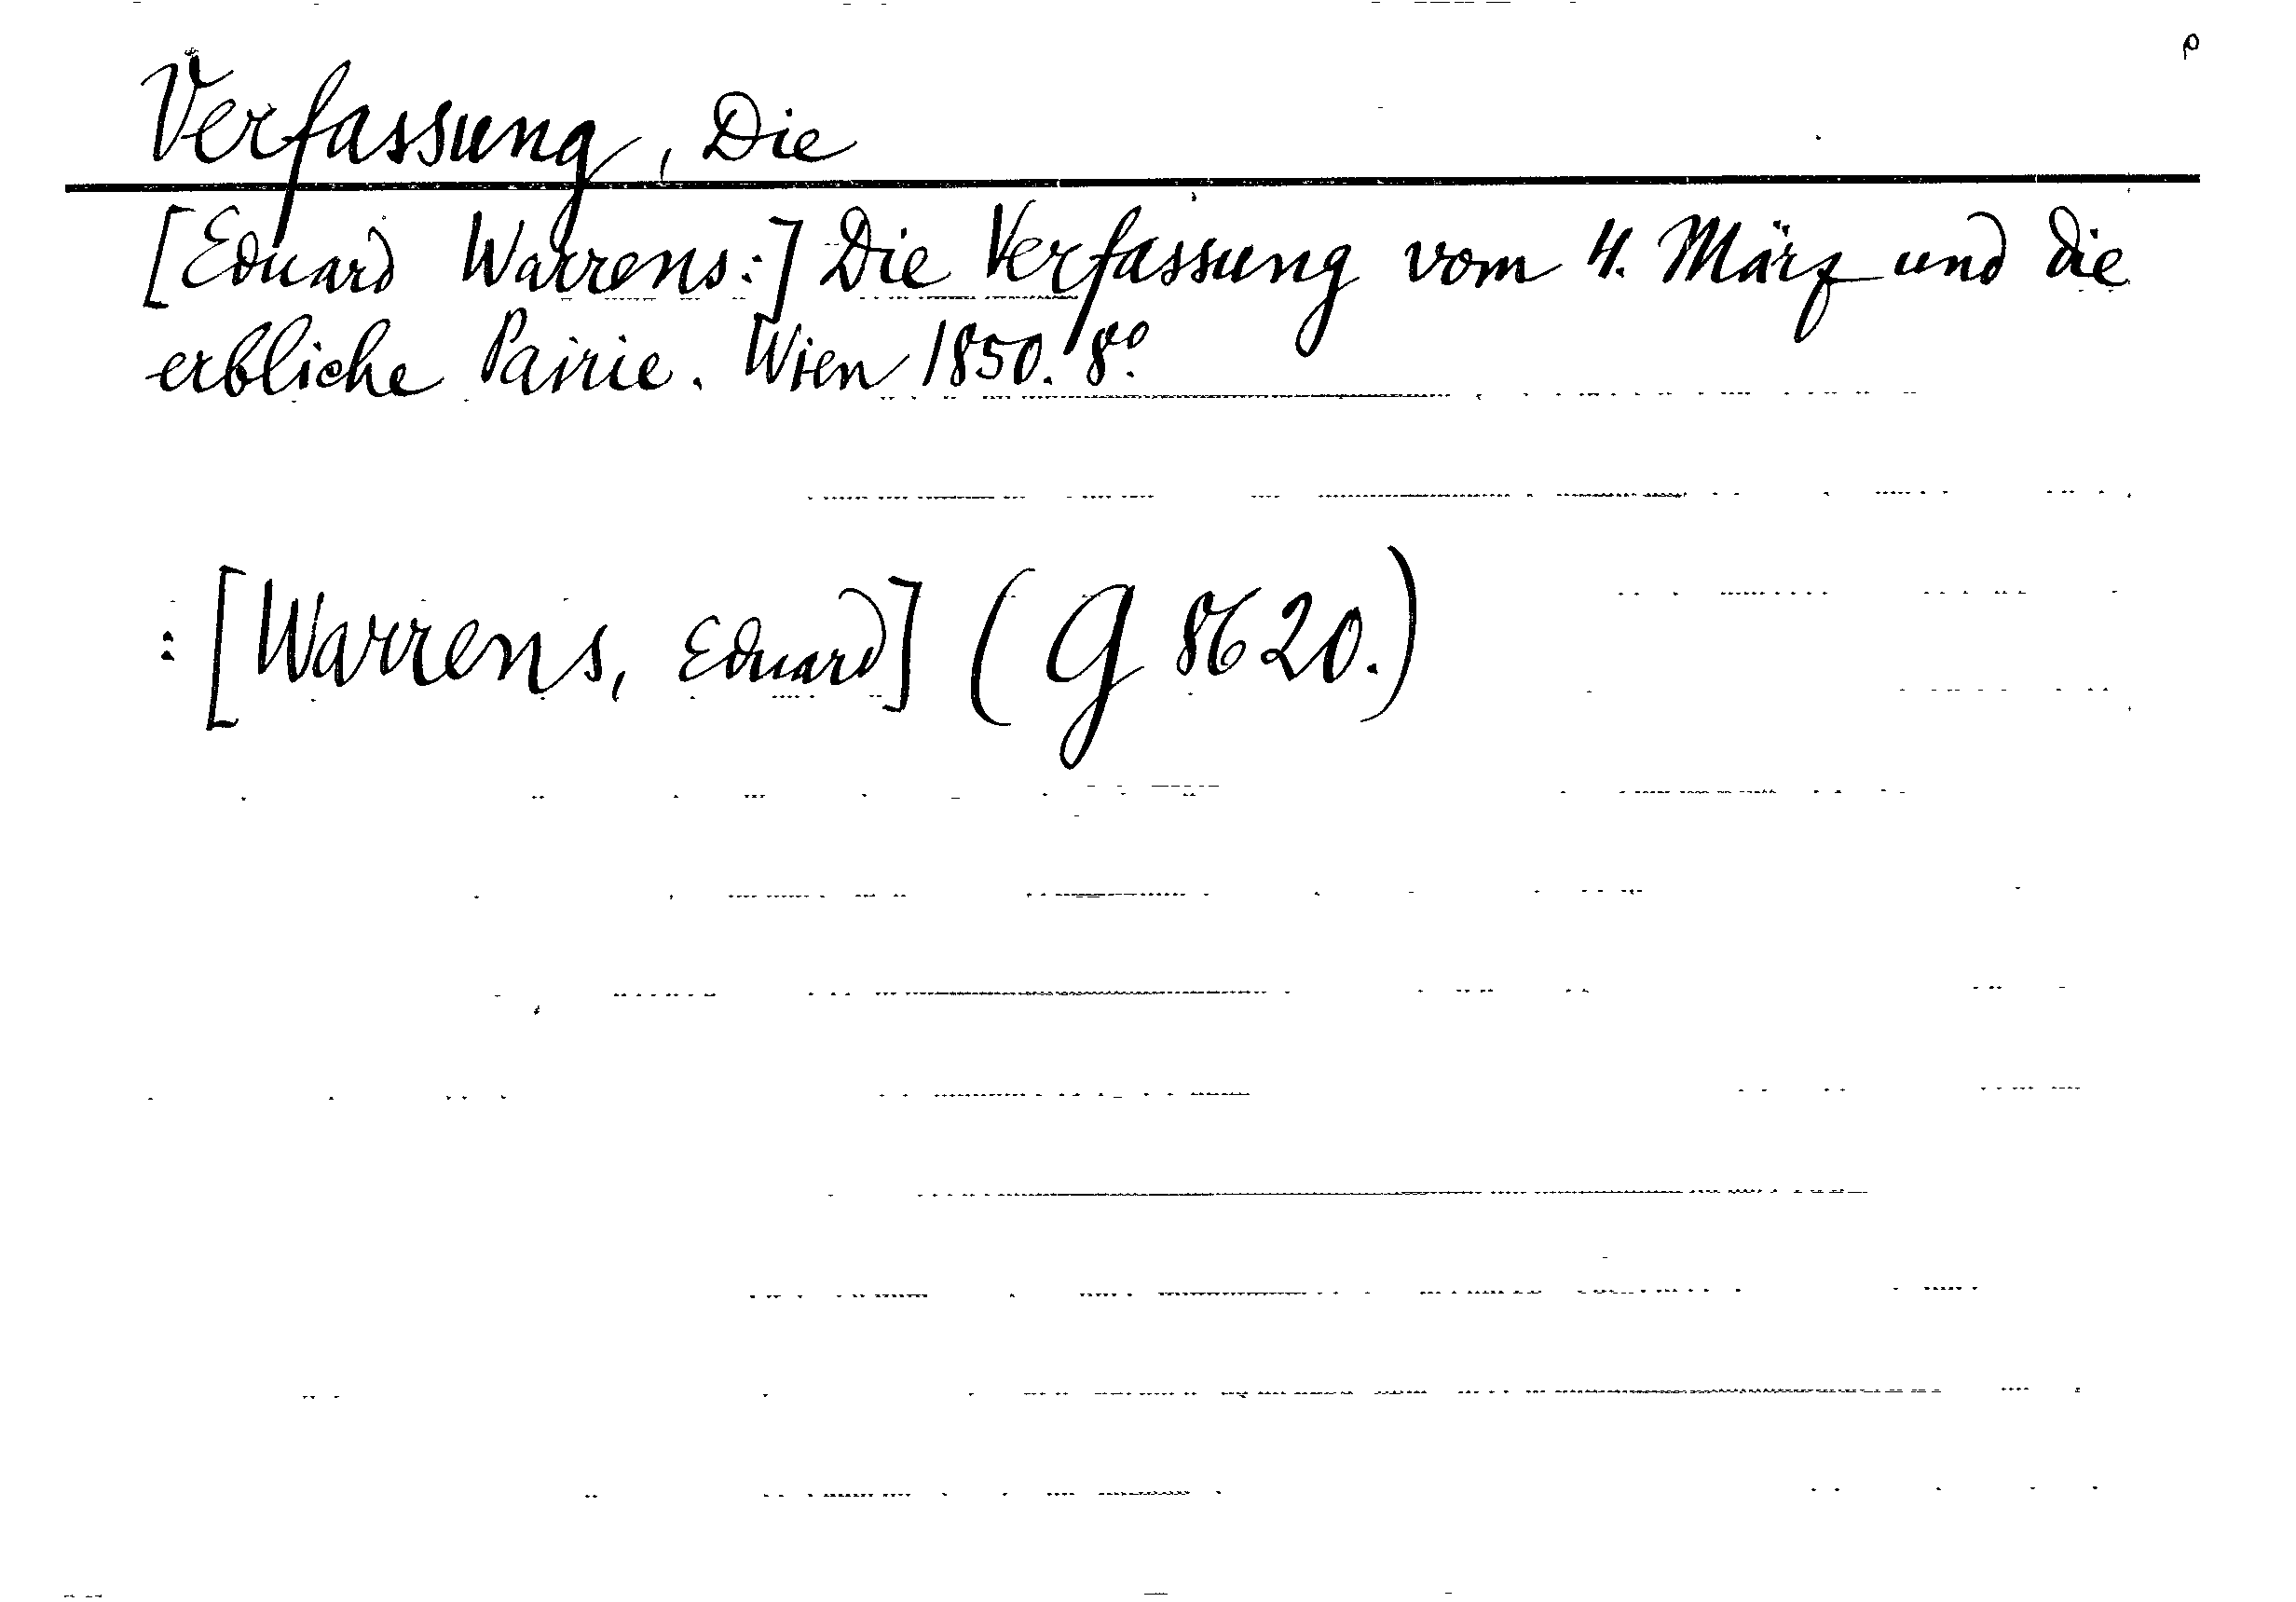 Verfassung, Die
[Eduard Warrens:] Die Verfassung vom 4. März und die
erbliche Pairie. Wien 1850. 8º.
: [Warrens, Eduard] (G 8620.)